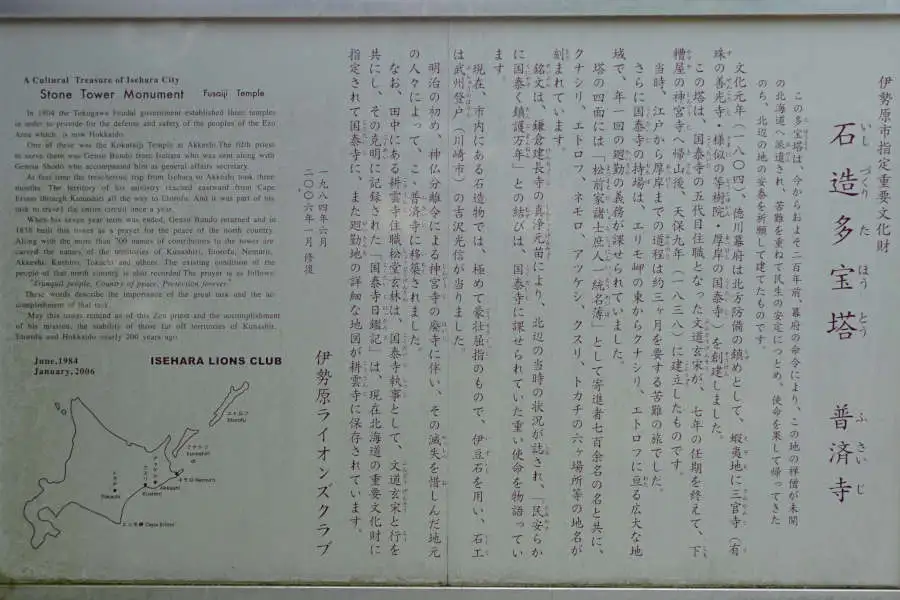 伊勢原市指定重要文化財
石造多宝塔 普済寺
いし づくり た ほう とう ふ さい じ
この多宝塔は、今からおよそ二百年前、幕府の命令により、この地の禅僧が未開
の北海道へ派遣され、苦難を重ねて民生の安定につとめ、使命を果して帰ってきた
のち、北辺の地の安泰を祈願して建てたものです。
文化元年(一八〇四)、徳川幕府は北方防備の鎮めとして、蝦夷地に三官寺(有
珠の善光寺・様似の等樹院・厚岸の国泰寺)を創建しました。
この塔は、国泰寺の五代目住職となった文道玄宋が、七年の任期を終えて、下
糟屋の神宮寺へ帰山後、天保九年(一八三八)に建立したものです。
当時、江戸から厚岸までの道程は約三ヶ月を要する苦難の旅でした。
さらに国泰寺の持場は、エリモ岬の東からクナシリ、エトロフに亘る広大な地
域で、年一回の廻勤の義務が課せられていました。
塔の四面には「松前家諸士庶人一統名簿」として寄進者七百余名の名と共に、
クナシリ、エトロフ、ネモロ、アツケシ、クスリ、トカチの六ヶ場所等の地名が
刻まれています。
銘文は、鎌倉建長寺の真浄元苗により、北辺の当時の状況が誌され、「民安らか
に国泰く鎮護万年」との結びは、国泰寺に課せられていた重い使命を物語ってい
ます。
現在、市内にある石造物では、極めて豪壮屈指のもので、伊豆石を用い、石工
は武州登戸(川崎市)の吉沢光信が当りました。
明治の初め、神仏分離令による神宮寺の廃寺に伴い、その滅失を惜しんだ地元
の人々によって、こゝ普済寺に移築されました。
なお、田中にある耕雲寺住職松堂玄林は、国泰寺執事として、文道玄宋と行を
共にし、その克明に記録された「国泰寺日鑑記」は、現在北海道の重要文化財に
指定されて国泰寺に、また廻勤地の詳細な地図が耕雲寺に保存されています。
一九八四年六月
二〇〇六年一月 修復
伊勢原ライオンズクラブ
A Cultural Treasure of Isehara City
Stone Tower Monument Fusaiji Temple
In 1804 the Tokugawa Feudal government established three temples
in order to provide for the defense and safety of the peoples of the Ezo
Area which is now Hokkaido.
One of these was the Kokutaiji Temple at Akkeshi. The fifth priest
to serve there was Genso Bundo from Isehara who was sent along with
Genrin Shodo who accompanied him as general affairs secretary.
At that time the treacherous trip from Isehara to Akkeshi took three
months. The territory of his ministry reached eastward from Cape
Erimo through Kunashiri all the way to Etorofu. And it was part of his
task to travel the entire circuit once a year.
When his seven year term was ended, Genso Bundo returned and in
1838 built this tower as a prayer for the peace of the north country.
Along with the more than 700 names of contributors to the tower are
carved the names of the territories of Kunashiri, Etorofu, Nemuro,
Akkeshi, Kushiro, Tokachi and others. The existing condition of the
people of that north country is also recorded. The prayer is as follows:
"Tranquil people, Country of peace, Protection forever"
These words describe the importance of the great task and the ac-
complishment of that task.
May this tower remind us of this Zen priest and the accomplishment
of his mission, the stability of those far off territories of Kunashiri,
Etorofu and Hokkaido nearly 200 years ago.
June,1984
January,2006
ISEHARA LIONS CLUB
エトロフ
Etorofu
クナシリ
Kunashiri
ネモロ Nemuro
アツケシ
Akkeshi
クスリ
Kushiro
トカチ
Tokachi
エリモ岬 Cape Erimo